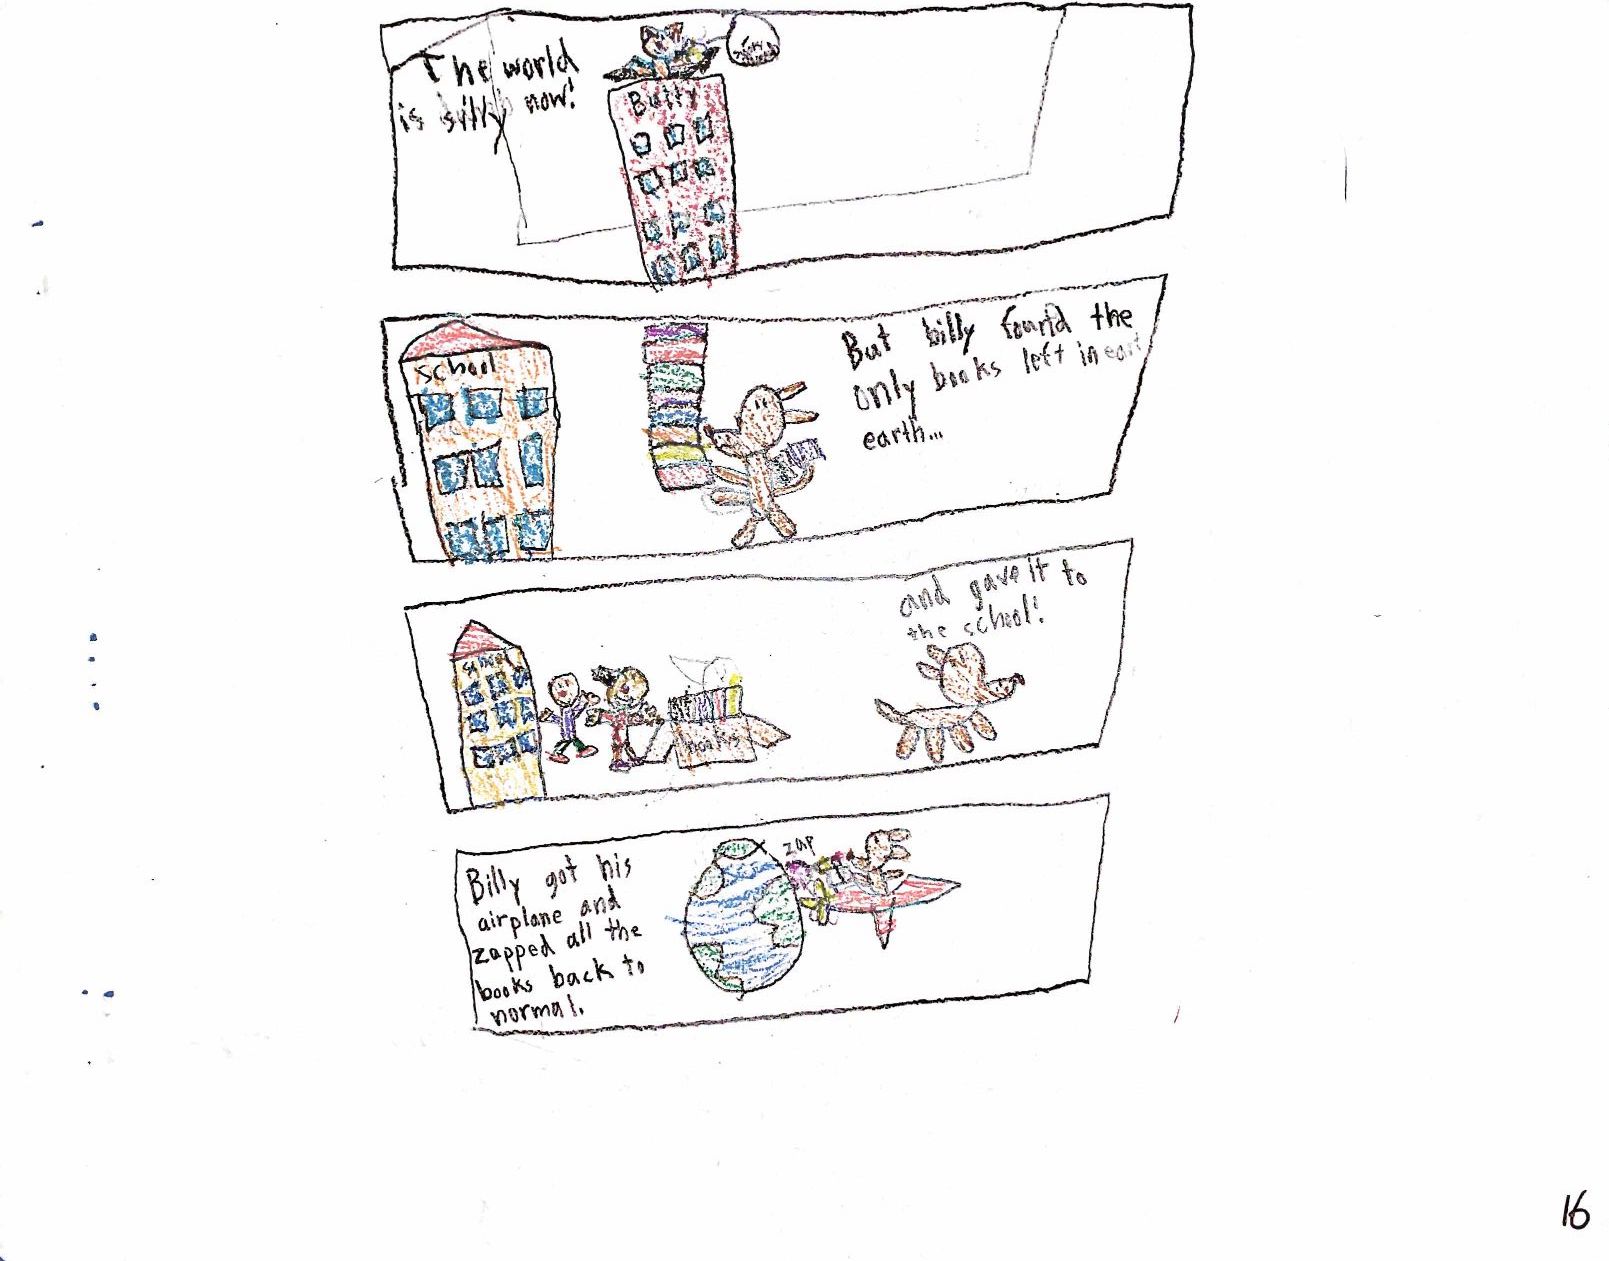 The world
is silly now!
But billy found the
only books left in eart
earth...
school
and gave it to
the school!
school
books
Billy got his
airplane and
zapped all the
books back to
normal.
zap
16